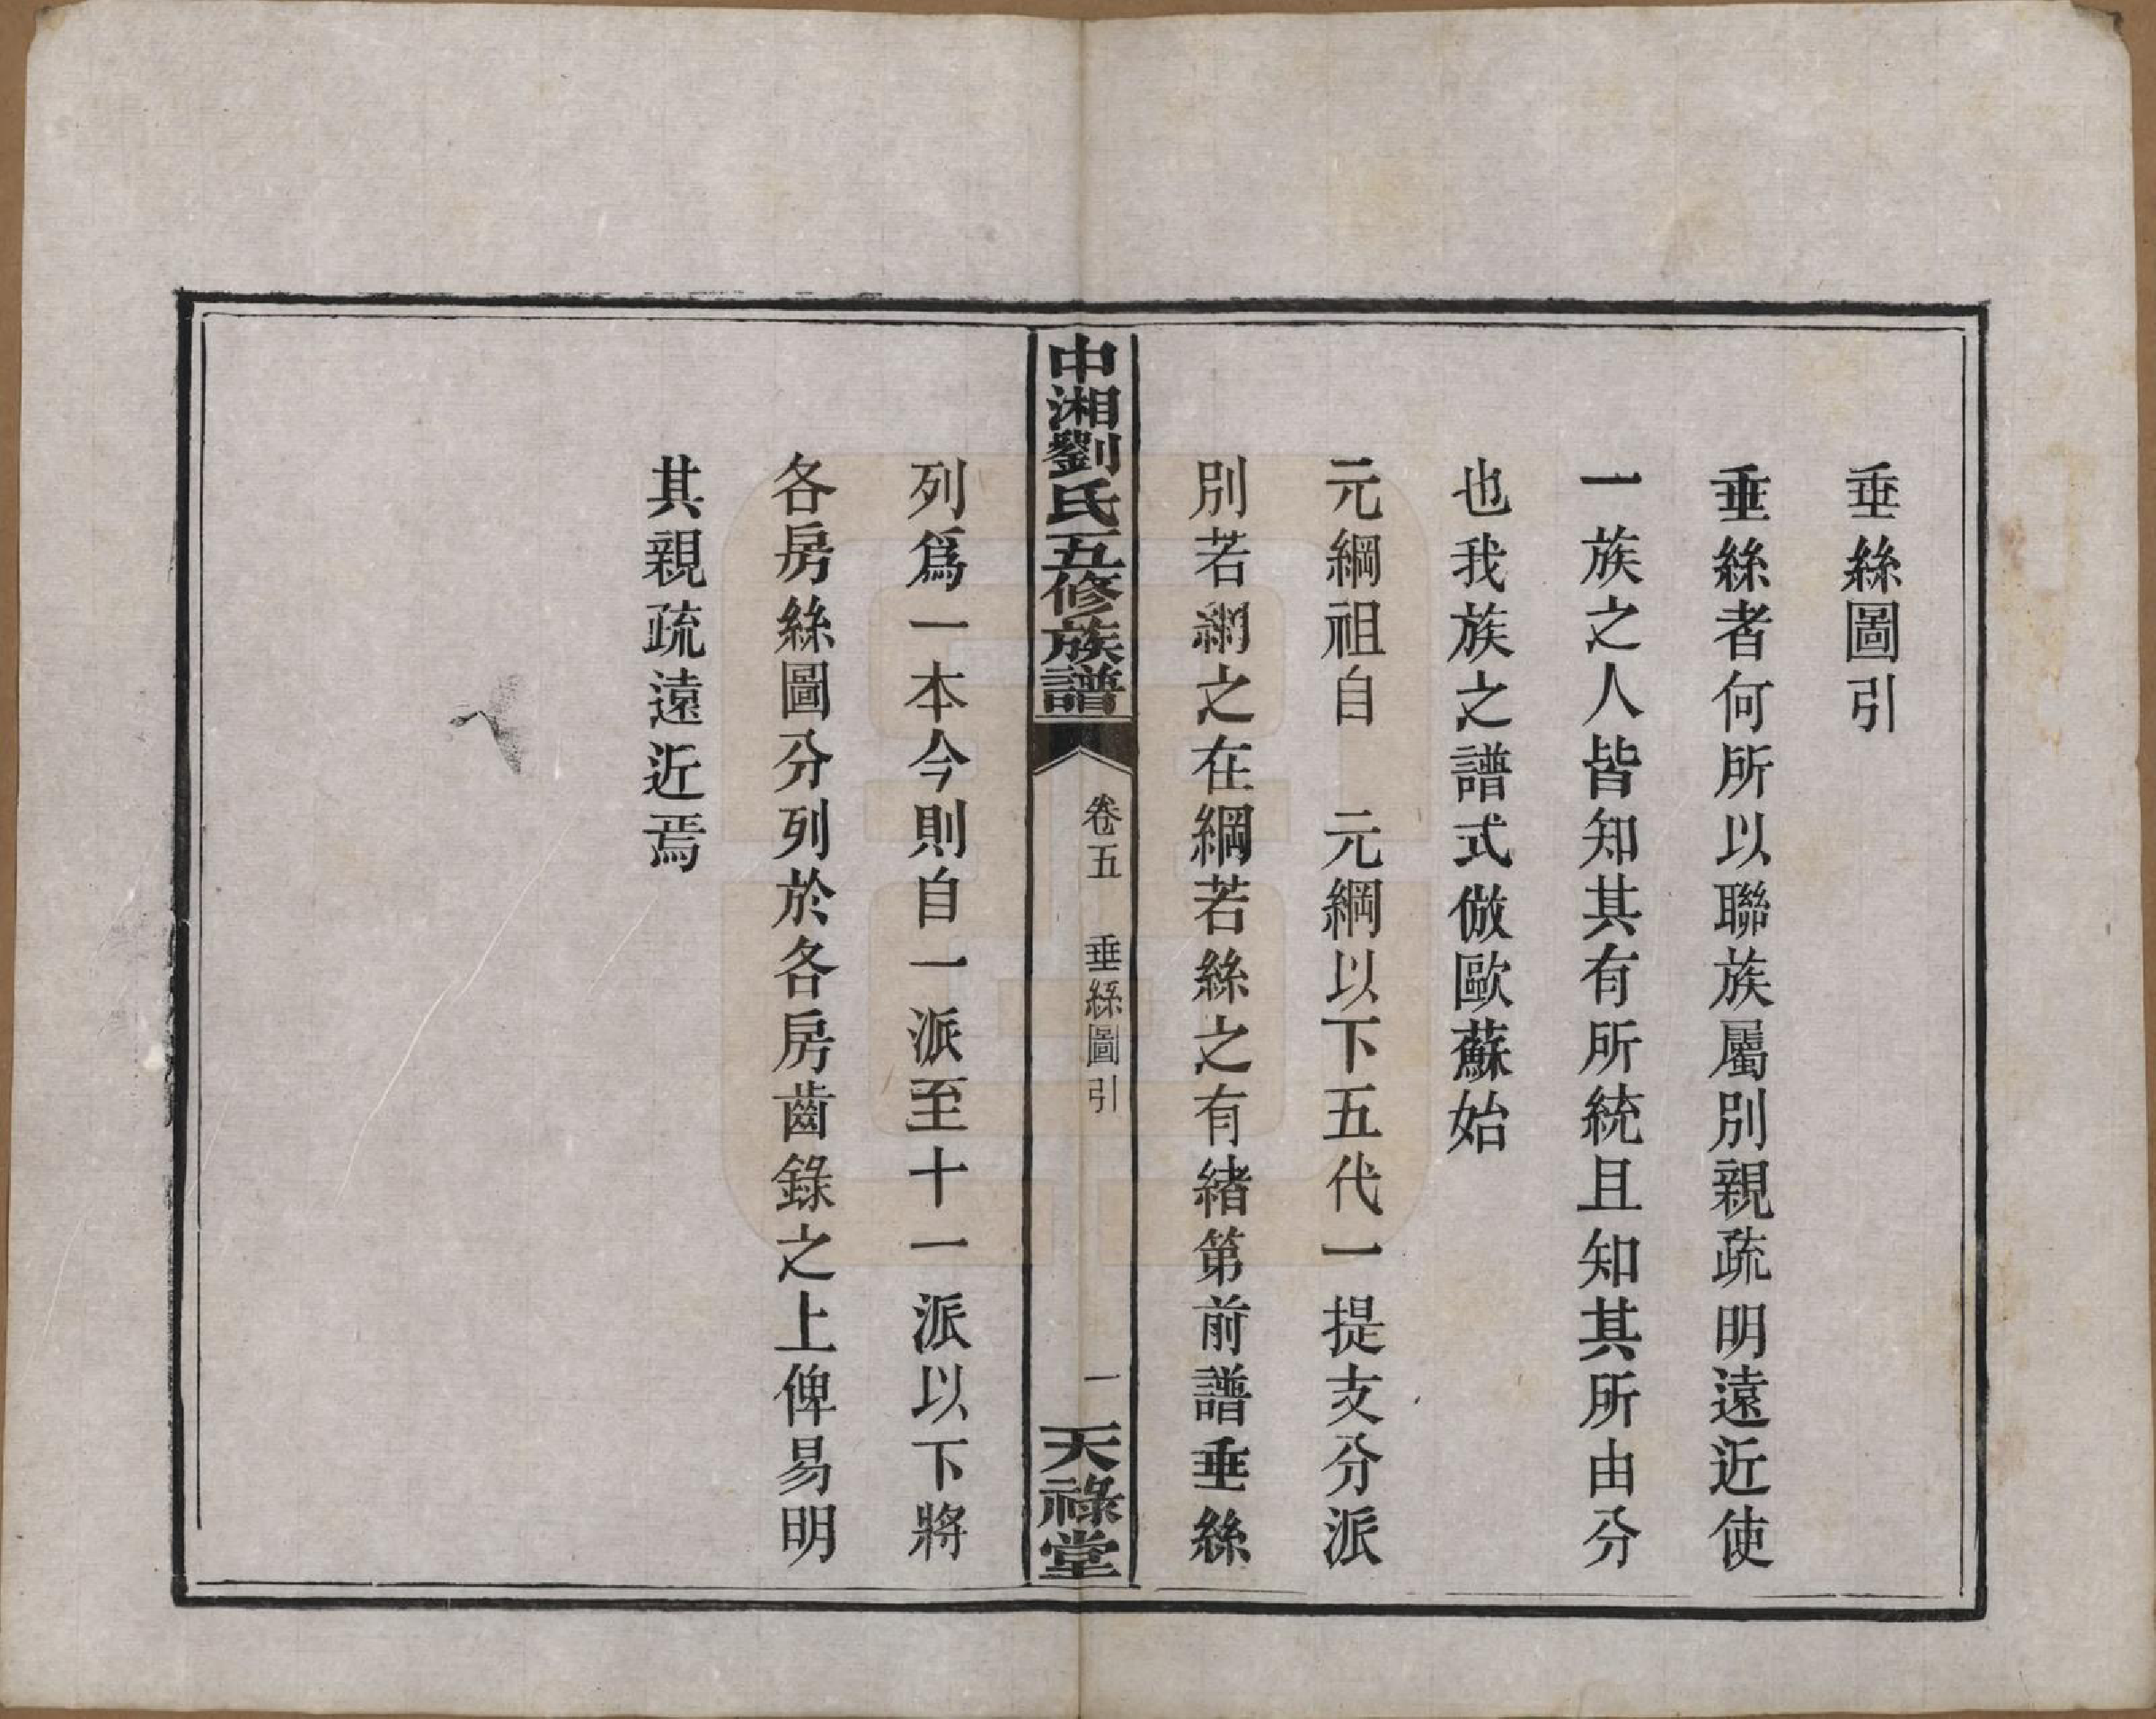 垂絲圖引
垂絲者何所以聯族屬別親疏明遠近使
一族之人皆知其有所統且知其所由分
也我族之譜式倣歐蘇始
元綱祖自　元綱以下五代一提支分派
別若網之在綱若絲之有緒第前譜垂絲
中湘劉氏五修族譜
卷五　垂絲圖引
一
天祿堂
列爲一本今則自一派至十一派以下將
各房絲圖分列於各房齒錄之上俾易明
其親疏遠近焉